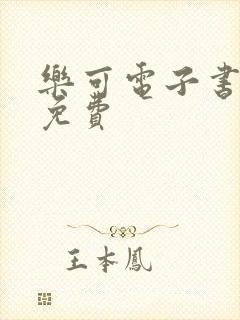 樂可電子書
免費
王本鳳